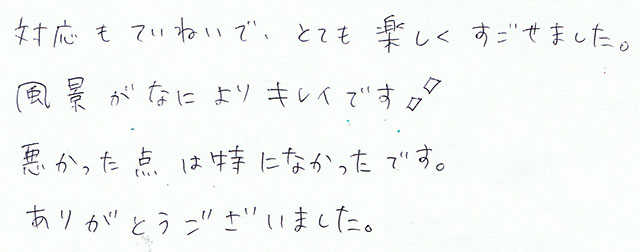 対応もていねいで、とても楽しくすごせました。
風景がなによりキレイです!!
悪かった点は特になかったです。
ありがとうございました。